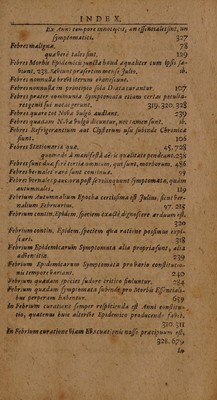 INDEX.
Ex Anni tempore innotescit, an essentiales sint, an
symptomaticæ, 327
Febres malignæ, 78
quæ veré tales sint, 129
Febres Morbis Epidemicis juncta haud æqualiter cum ipsis
biunt, 228. Sæviunt præsertim mense Julio, 16.
Febres nonnulla breki iterum exarcescunt. 39
Febres nonnulla in principio solâ Diæta curantur. 107
Febres præter communia Symptomata etiam certas peculia-
res genii sui notas gerunt, 319, 320, 328
Febres quare tot Nobis vulgò audiunt, 239
Febres quædam Nobis vulgò dicuntur, nec tamen sunt, 16
Febres à Refrigerantium aut Clysterum usu subinde Chronicæ
sunt, 106
Febres Stationariæ quæ, 45. 728
quomodo à manifestâ aëris qualitate pendeant, 238
Febres sunt duæ ferè tertiæ omnium, qui sunt, morborum, 486
Febres vernales raró sunt continuæ, 29
Febres Vernales pauciora post se relinquunt symptomata, quam
autumnales, 119
Febrium Autumnalium Epocha certissima est Julius, sicut ver-
nalium Februarius, 97, 218
Febrium contin. Epidem. speciem exactè dignoscere arduum est.
320
Febrium contin. Epidem. species quâ ratione possimus expi-
scari. 318
Febrium Epidemicarum Symptomata alia propria sunt, alia
adscititia: 239
Febrium Epidemicarum Symptomata pro bario constitutio-
nis tempore variant. 240
Febrium quædam species sudore critico finiuntur, 284
Febrium quædam symptomata subinde pro Morbis Essentiali-
bus perperam habentur, 659
In Febrium curatione semper respicienda est Anni constitu-
tio, quatenus huic alterive Epidemico producendo fabet.
310, 311
In Febrium curationibus nosse præcipuum est,
328. 679